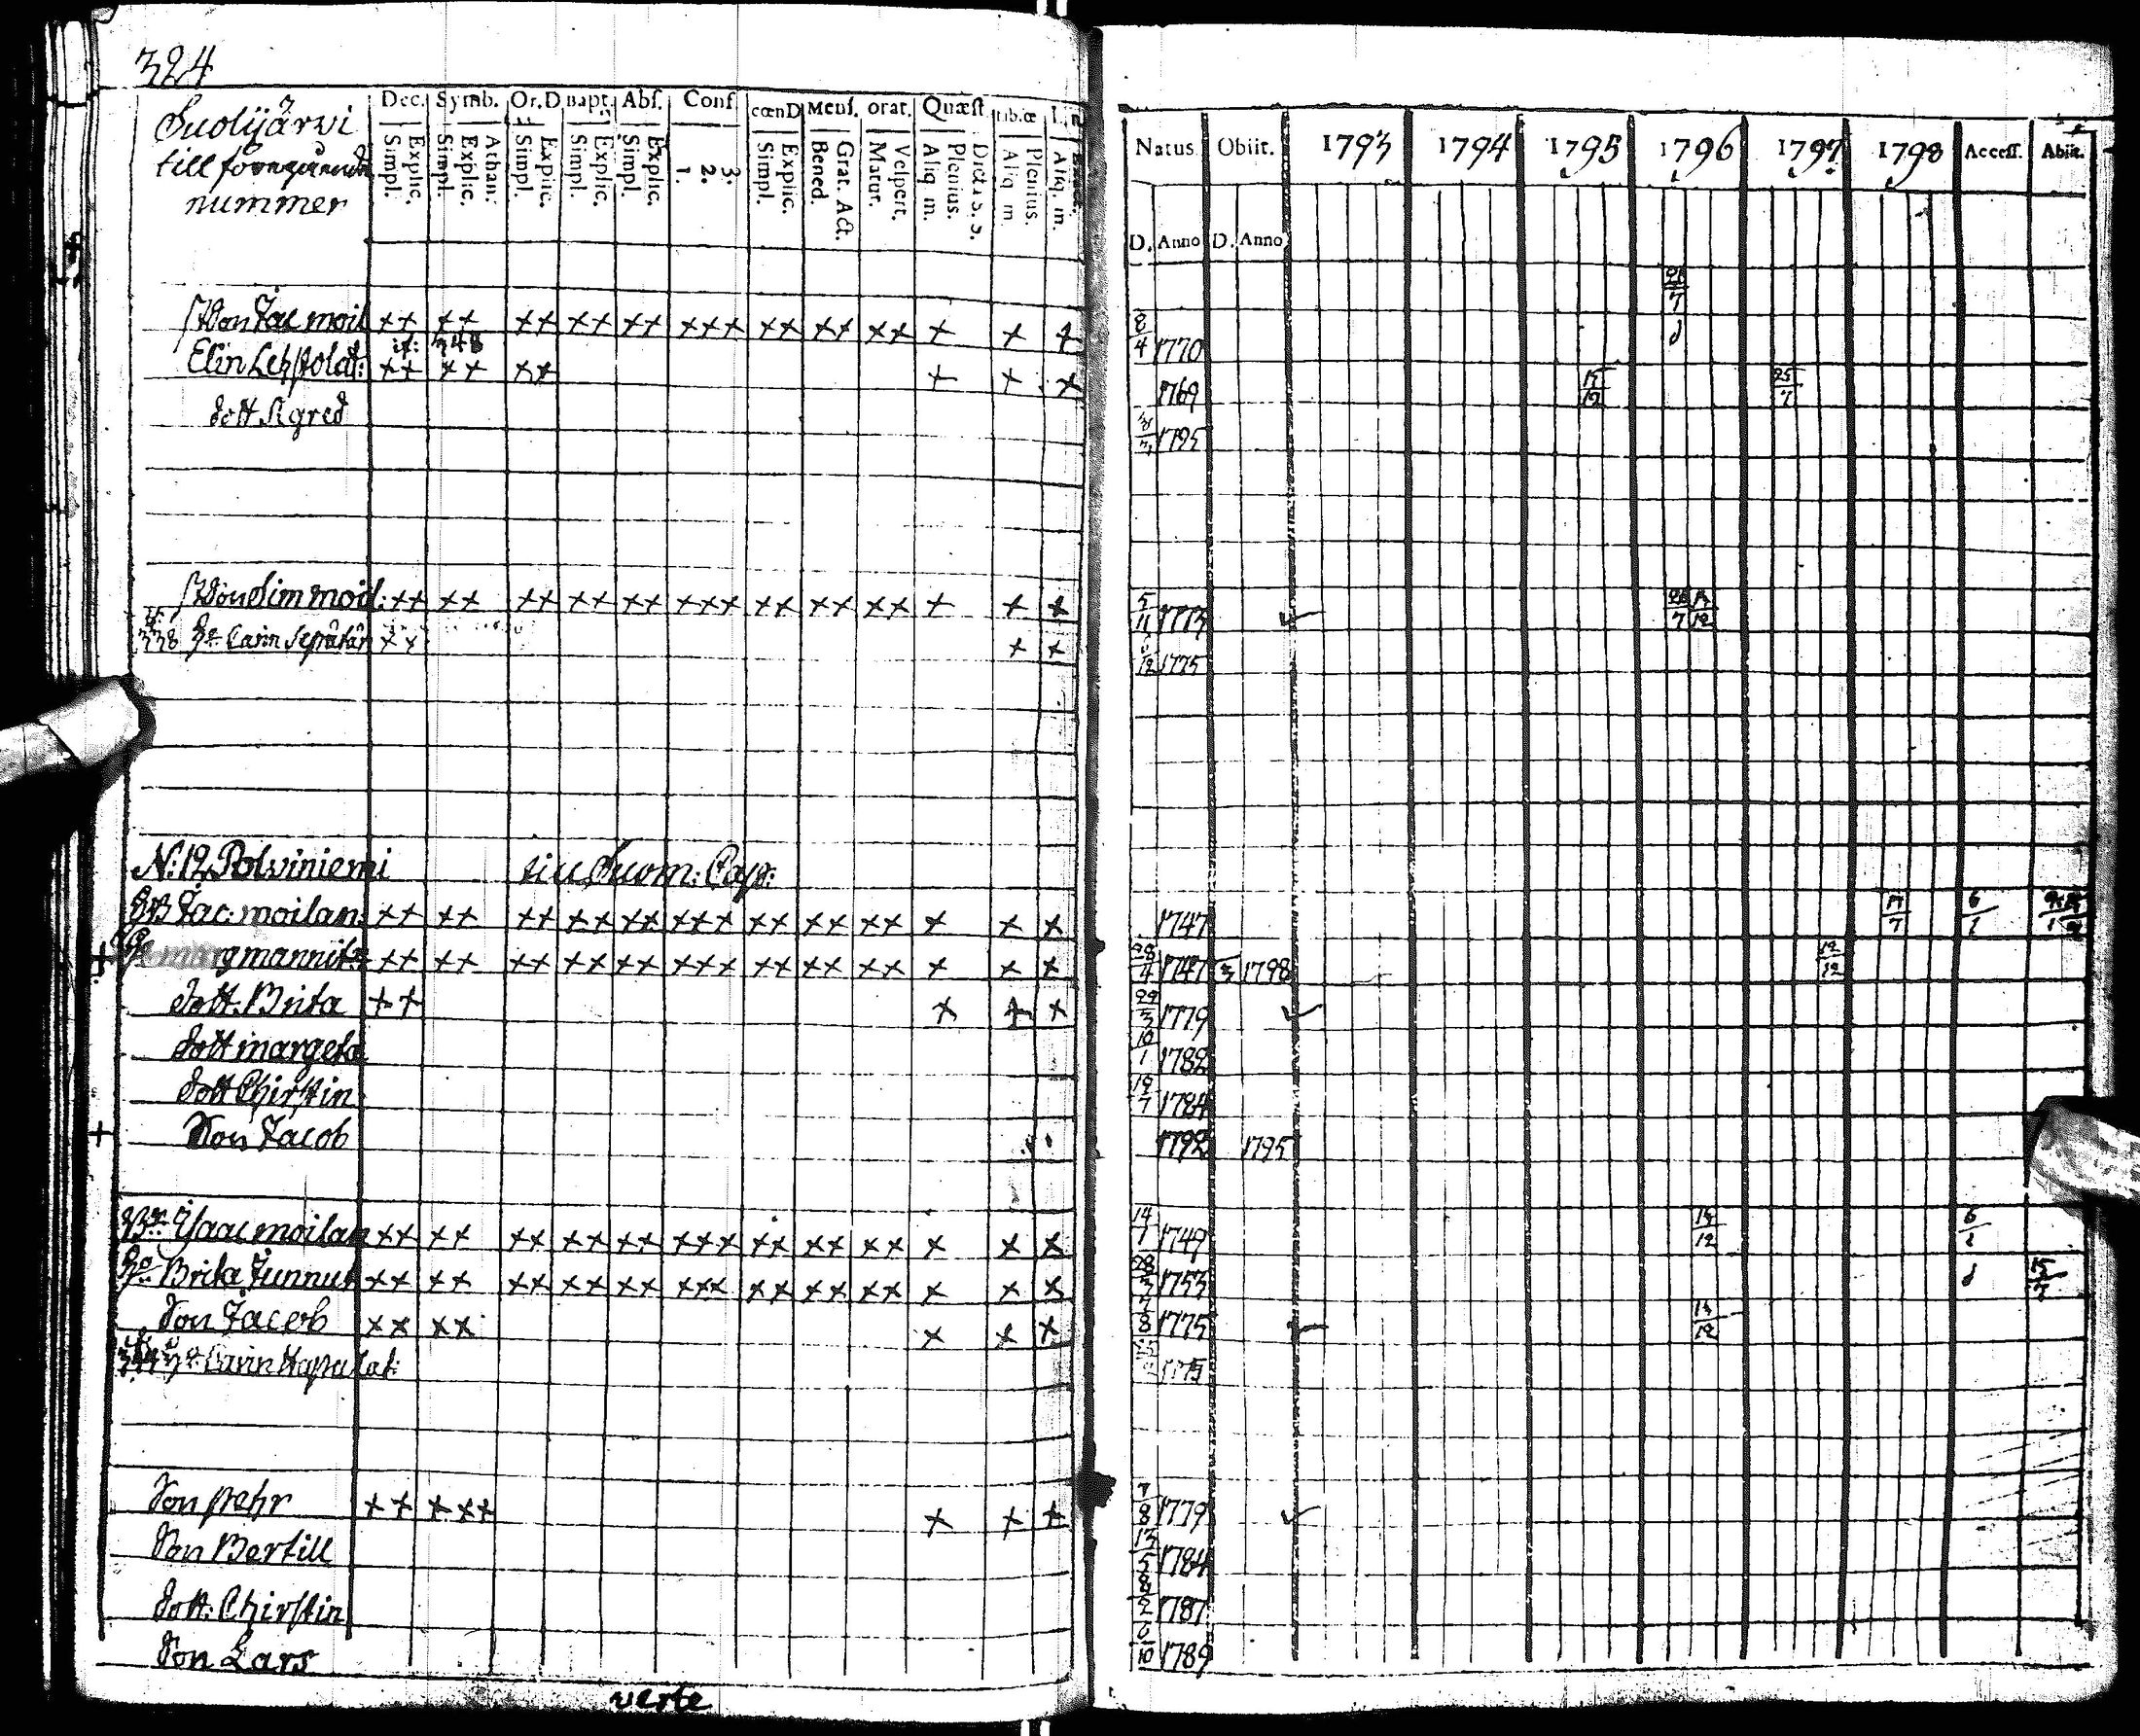 324
Suolijärvi
till föregående
nummer
Dec. Symb. Or.D Bapt. Abs. Conf cœnD Mens. orat. Quæst
Simpl. Explic. Simpl. Explic. Athan. Simpl. Explic. Simpl. Explic. Simpl. Explic. 1. 2. 3. Simpl. Explic. Bened. Grat. Act. Matut. Vespert. Aliq. m. Plenius. Aliq. m. Plenius. Aliq. m.
Natus Obiit. 1793 1794 1795 1796 1797 1798 Access. Abiit.
D. Anno D. Anno
21/7
Son Jac moil ++ ++ ++ ++ ++ +++ ++ ++ ++ + + + 8/4 1770
348
Elin ++ ++ ++ + + + 1769 15/12 25/7
dott Agred 1795
Son Sim moil: ++ ++ ++ ++ ++ +++ ++ ++ ++ + + + 5/11 1773 26/7 /12
338 Carin ++ + + /12 1775
N:12 Polviniemi Suom: Cap:
Jac: moilan: ++ ++ ++ ++ ++ +++ ++ ++ ++ + + + 1747 17/7 6/1
marg mannit: ++ ++ ++ ++ ++ +++ ++ ++ ++ + + + 28/4 1747 1798 12/12
dott: Brita ++ + + + 29/3 1779
dott margeta 10/1 1782
dott Chirstin 19/7 1784
Son Jacob 1792 1795
Isaac moilan ++ ++ ++ ++ ++ +++ ++ ++ ++ + + + 14/1 1749 14/12 6/1
Brita Junnut ++ ++ ++ ++ ++ +++ ++ ++ ++ + + + 28/3 1753 15/7
Son Jacob ++ ++ + + + 7/8 1775 14/12
Carin 1775
Son pehr ++ +++ + + + 7/8 1779
Son Bertill 13/5 1784
dott: Chirstin 8/2 1787
Son Lars 6/10 1789
verte